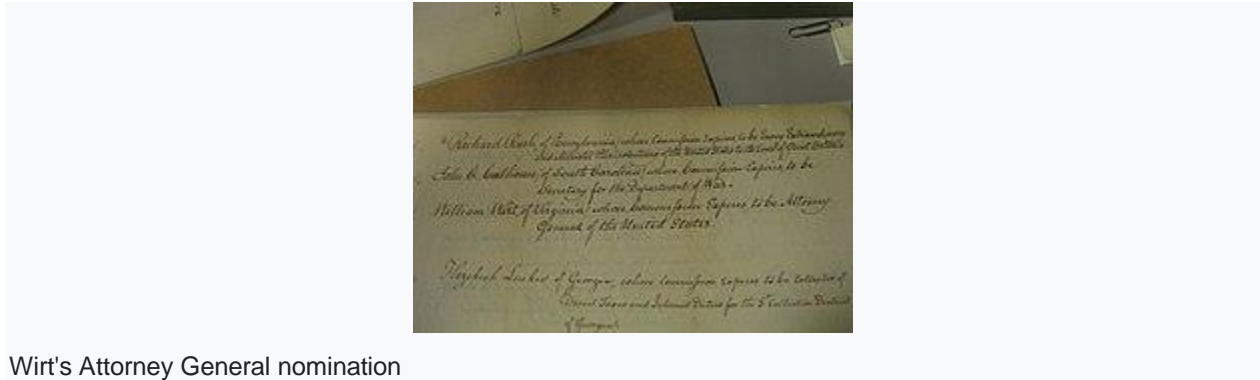 "Richard Rush, of Pennsylvania, whose Commission Expires, to be Envoy Extraordinary
and Minister Plenipotentiary of the United States to the Court of Great Britain
John C. Calhoun, of South Carolina, whose Commission Expires, to be
Secretary for the Department of War.
William Wirt, of Virginia, whose Commission Expires to be Attorney
General of the United States.
of Georgia, whose Commission expires to be Collector of
Direct Taxes and Internal Duties for the Collection District
of Georgia
Wirt's Attorney General nomination